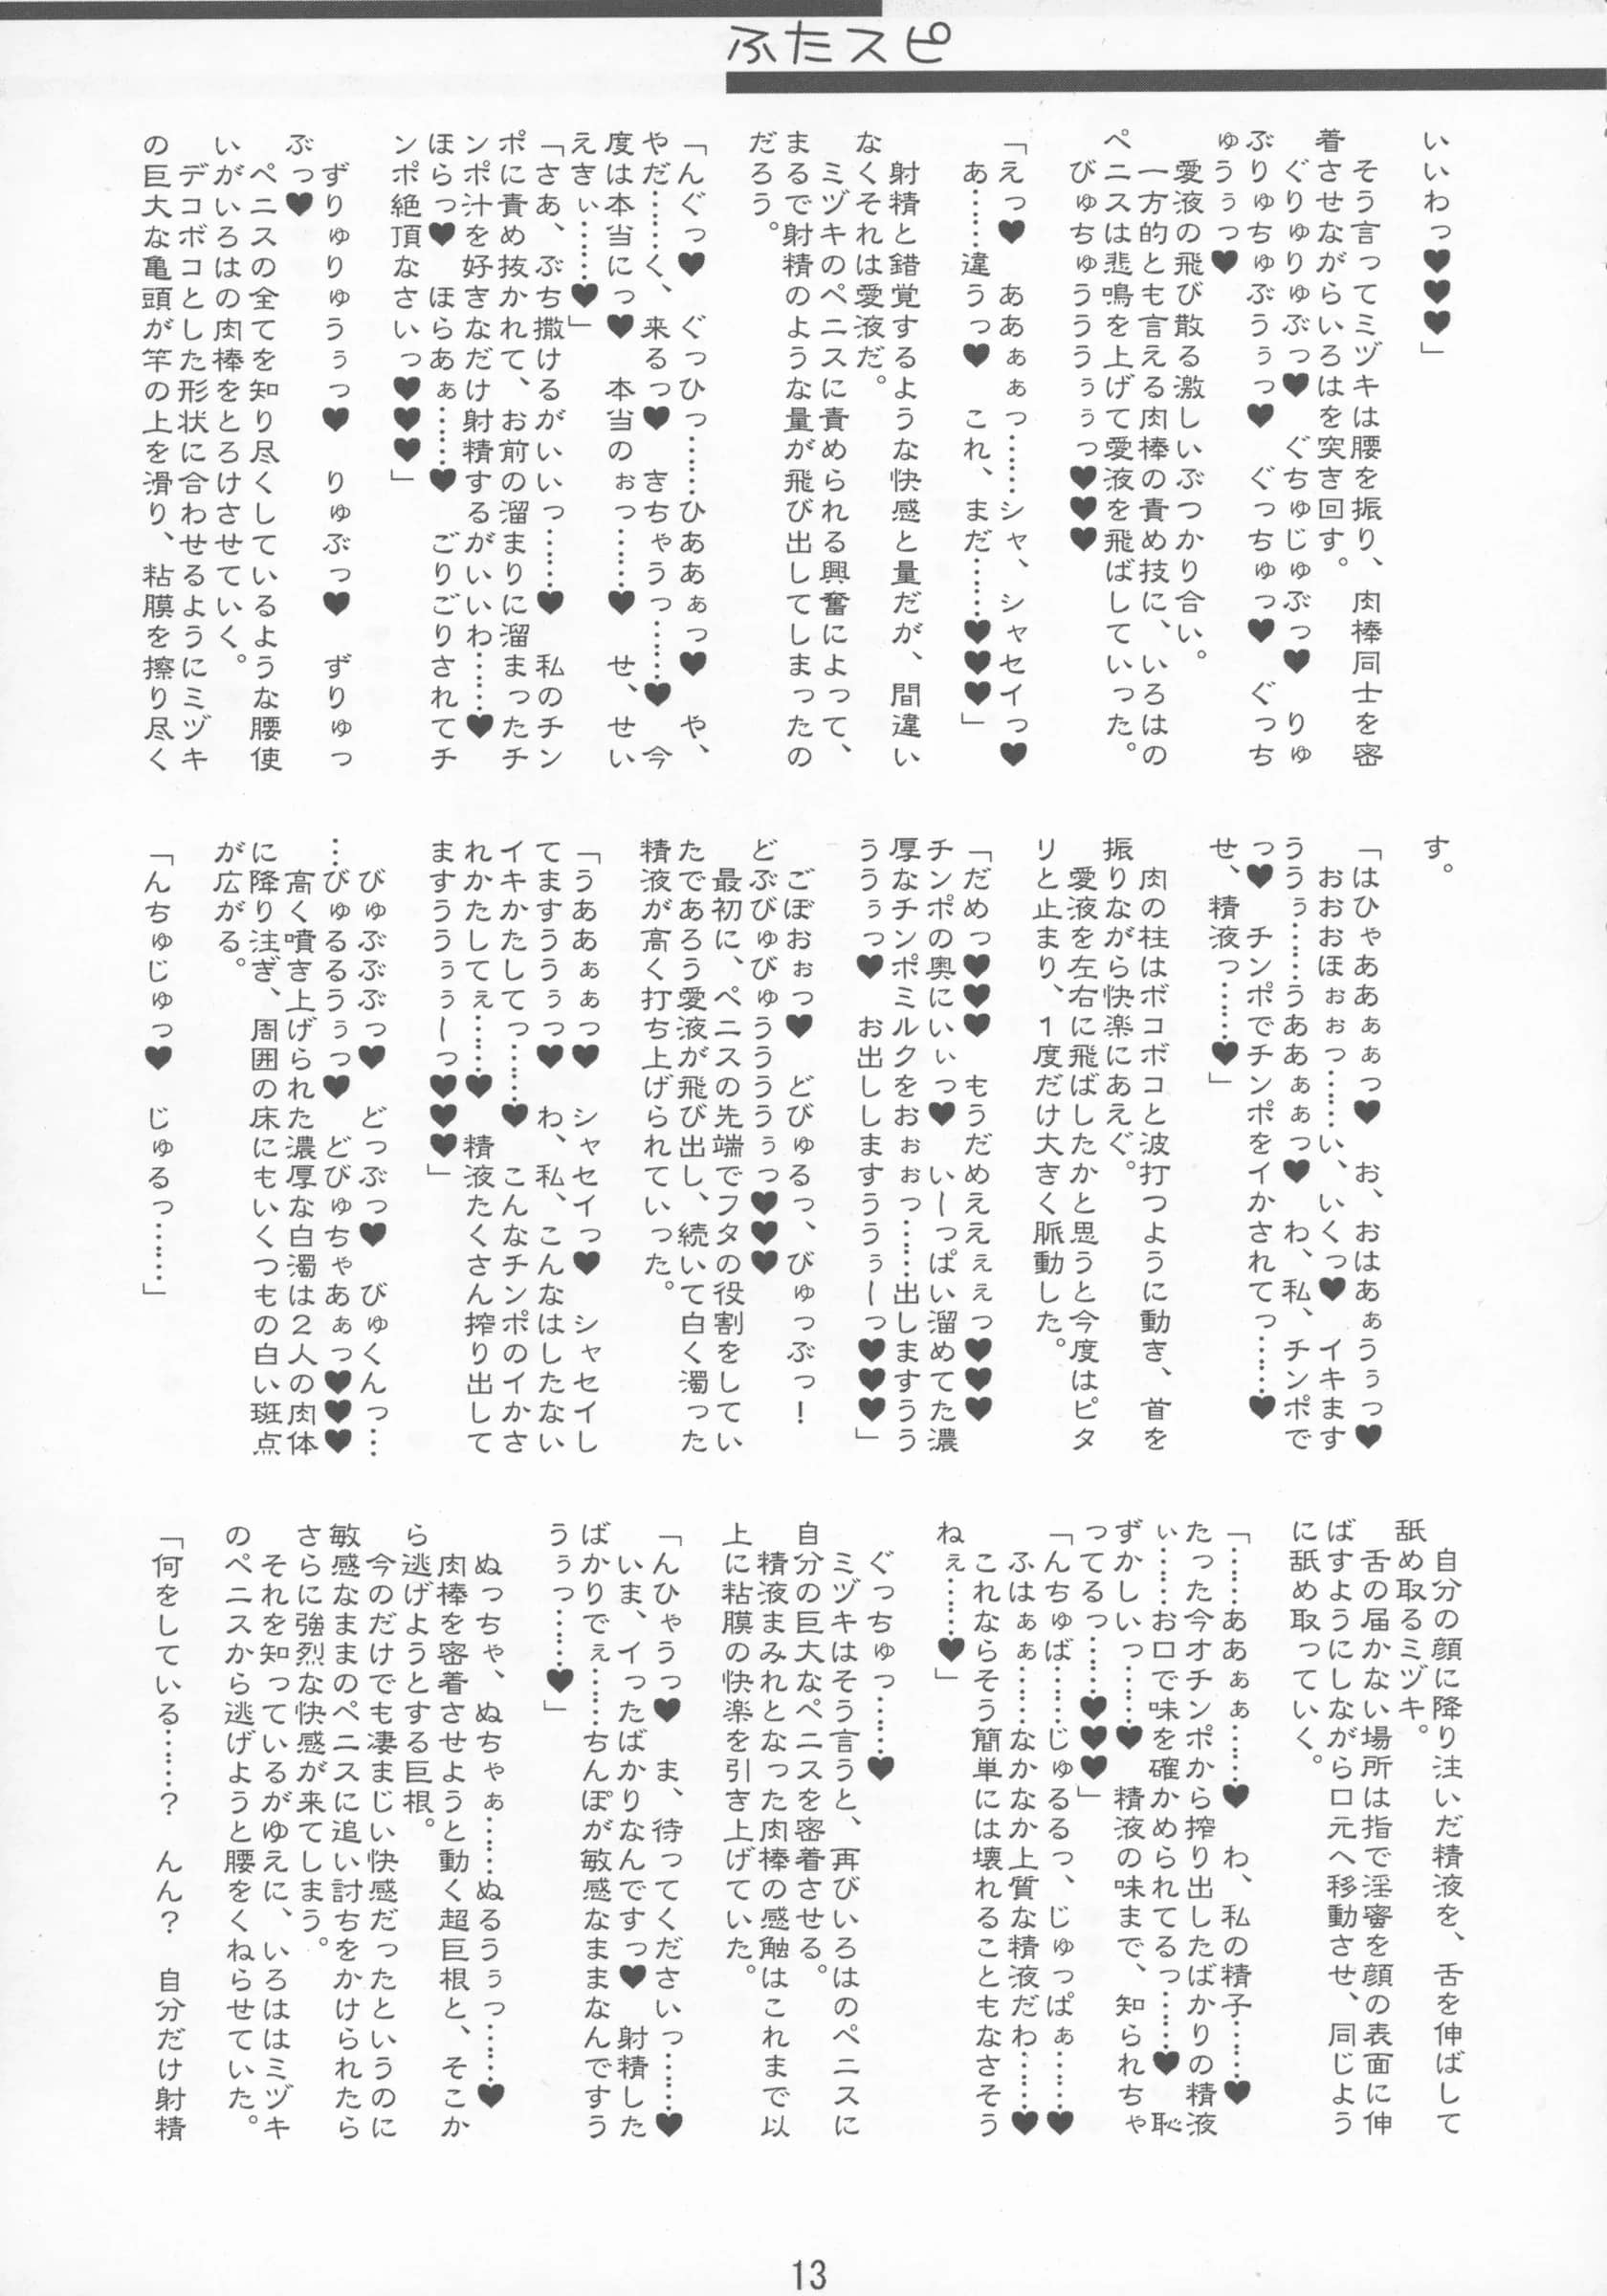 ふたスピ
いいわっ♥♥♥」
そう言ってミヅキは腰を振り、肉棒同士を密
着させながらいろはを突き回す。
ぐりゅりゅぶっ♥　ぐちゅじゅぶっ♥　りゅ
ぶりゅちゅぶうぅっ♥　ぐっちゅっ♥　ぐっち
ゅうぅっ♥
愛液の飛び散る激しいぶつかり合い。
一方的とも言える肉棒の責め技に、いろはの
ペニスは悲鳴を上げて愛液を飛ばしていった。
びゅちゅうううぅぅっ♥♥♥
「えっ♥　ああぁぁっ……シャ、シャセイっ♥
あ……違うっ♥　これ、まだ……♥♥♥」
射精と錯覚するような快感と量だが、間違い
なくそれは愛液だ。
ミヅキのペニスに責められる興奮によって、
まるで射精のような量が飛び出してしまったの
だろう。
「んぐっ♥　ぐっひっ……ひああぁっ♥　や、
やだ……く、来るっ♥　きちゃうっ……♥　今
度は本当にっ♥　本当のぉっ……♥　せ、せい
えきぃ……♥」
「さあ、ぶち撒けるがいいっ……♥　私のチン
ポに責め抜かれて、お前の溜まりに溜まったチ
ンポ汁を好きなだけ射精するがいいわ……♥
ほらっ♥　ほらあぁ……♥　ごりごりされてチ
ンポ絶頂なさいっ♥♥♥」
ずりゅりゅうぅっ♥　りゅぶっ♥　ずりゅっ
ぶっ♥
ペニスの全てを知り尽くしているような腰使
いがいろはの肉棒をとろけさせていく。
デコボコとした形状に合わせるようにミヅキ
の巨大な亀頭が竿の上を滑り、粘膜を擦り尽く
す。
「はひゃああぁぁっ♥　お、おはあぁうぅっ♥
おおおほぉぉっ……い、いくっ♥　イキます
ううぅ……うああぁぁっ♥　わ、私、チンポで
っ♥　チンポでチンポをイかされてっ……♥
せ、精液っ……♥」
肉の柱はボコボコと波打つように動き、首を
振りながら快楽にあえぐ。
愛液を左右に飛ばしたかと思うと今度はピタ
リと止まり、１度だけ大きく脈動した。
「だめっ♥♥♥　もうだめええぇぇっ♥♥♥
チンポの奥にいぃっ♥　い～っぱい溜めてた濃
厚なチンポミルクをおぉぉっ……出しますうう
ううぅっ♥　お出ししますううぅ～っ♥♥♥」
ごぼおぉっ♥　どびゅるっ、びゅっぶっ！
どぶびゅびゅうううぅっ♥♥♥
最初に、ペニスの先端でフタの役割をしてい
たであろう愛液が飛び出し、続いて白く濁った
精液が高く打ち上げられていった。
「うああぁぁっ♥　シャセイっ♥　シャセイし
てますううぅっ♥　わ、私、こんなはしたない
イキかたしてっ……♥　こんなチンポのイかさ
れかたしてぇ……♥　精液たくさん搾り出して
ますううぅぅ～っ♥♥♥」
びゅぶぶぶっ♥　どっぶっ♥　びゅくんっ…
…びゅるるうぅっ♥　どびゅちゃあぁっ♥♥♥
高く噴き上げられた濃厚な白濁は２人の肉体
に降り注ぎ、周囲の床にもいくつもの白い斑点
が広がる。
「んちゅじゅっ♥　じゅるっ……」
自分の顔に降り注いだ精液を、舌を伸ばして
舐め取るミヅキ。
舌の届かない場所は指で淫審を顔の表面に伸
ばすようにしながら口元へ移動させ、同じよう
に舐め取っていく。
「……ああぁぁ……♥　わ、私の精子……♥
たった今オチンポから搾り出したばかりの精液
ぃ……お口で味を確かめられてるっ……♥　恥
ずかしいっ……♥　精液の味まで、知られちゃ
ってるっ……♥♥♥」
「んちゅば……じゅるるっ、じゅっぱぁ……♥
ふはぁぁ……なかなか上質な精液だわ……♥
これならそう簡単には壊れることもなさそう
ねぇ……♥」
ぐっちゅっ……♥
ミヅキはそう言うと、再びいろはのペニスに
自分の巨大なペニスを密着させる。
精液まみれとなった肉棒の感触はこれまで以
上に粘膜の快楽を引き上げていた。
「んひゃうっ♥　ま、待ってくださいっ……♥
いま、イったばかりなんですっ♥　射精した
ばかりでぇ……ちんぽが敏感なままなんですう
うぅっ……♥」
ぬっちゃ、ぬちゃぁ……ぬるうぅっ……♥
肉棒を密着させようと動く超巨根と、そこか
ら逃げようとする巨根。
今のだけでも凄まじい快感だったというのに
敏感なままのペニスに追い討ちをかけられたら
さらに強烈な快感が来てしまう。
それを知っているがゆえに、いろははミヅキ
のペニスから逃げようと腰をくねらせていた。
「何をしている……？　んん？　自分だけ射精
13